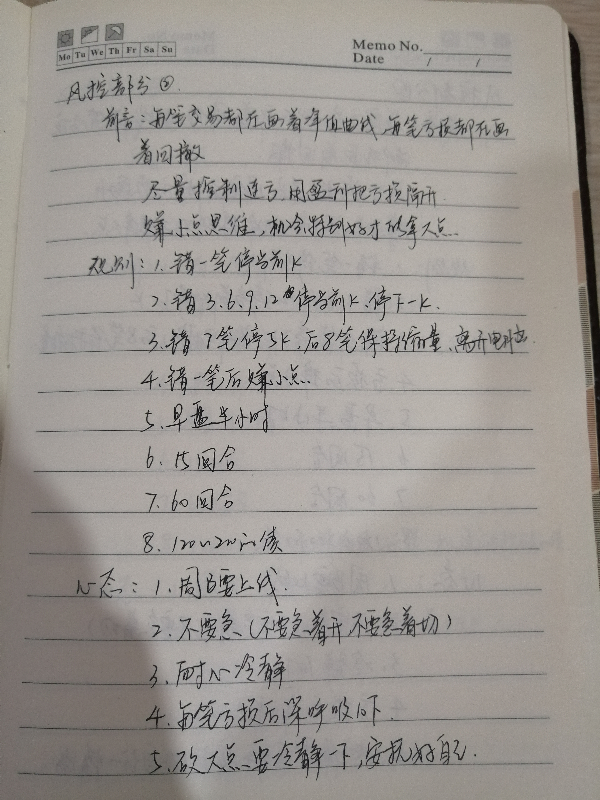 Mo Tu We Th Fr Sa Su
Memo No.
Date / /
风控部分②
前言:每笔交易都在画着净值曲线,每笔亏损都在画
着回撤
尽量控制连亏,用盈利把亏损隔开.
赚小点思维,机会特别好才能拿大点.
规则:1.错一笔停当前K
2.错3.6.9.12 停当前K.停下一K.
3.错7笔停5K,后8笔保持缩量、离开电脑
4.错一笔后赚小点
5.早盘半小时
6.15回合
7.60回合
8.
心态:1.周日要上线.
2.不要急(不要急着开,不要急着切)
3.耐心冷静
4.每笔亏损后深呼吸10下.
5.砍大点要冷静一下,安抚好自己.